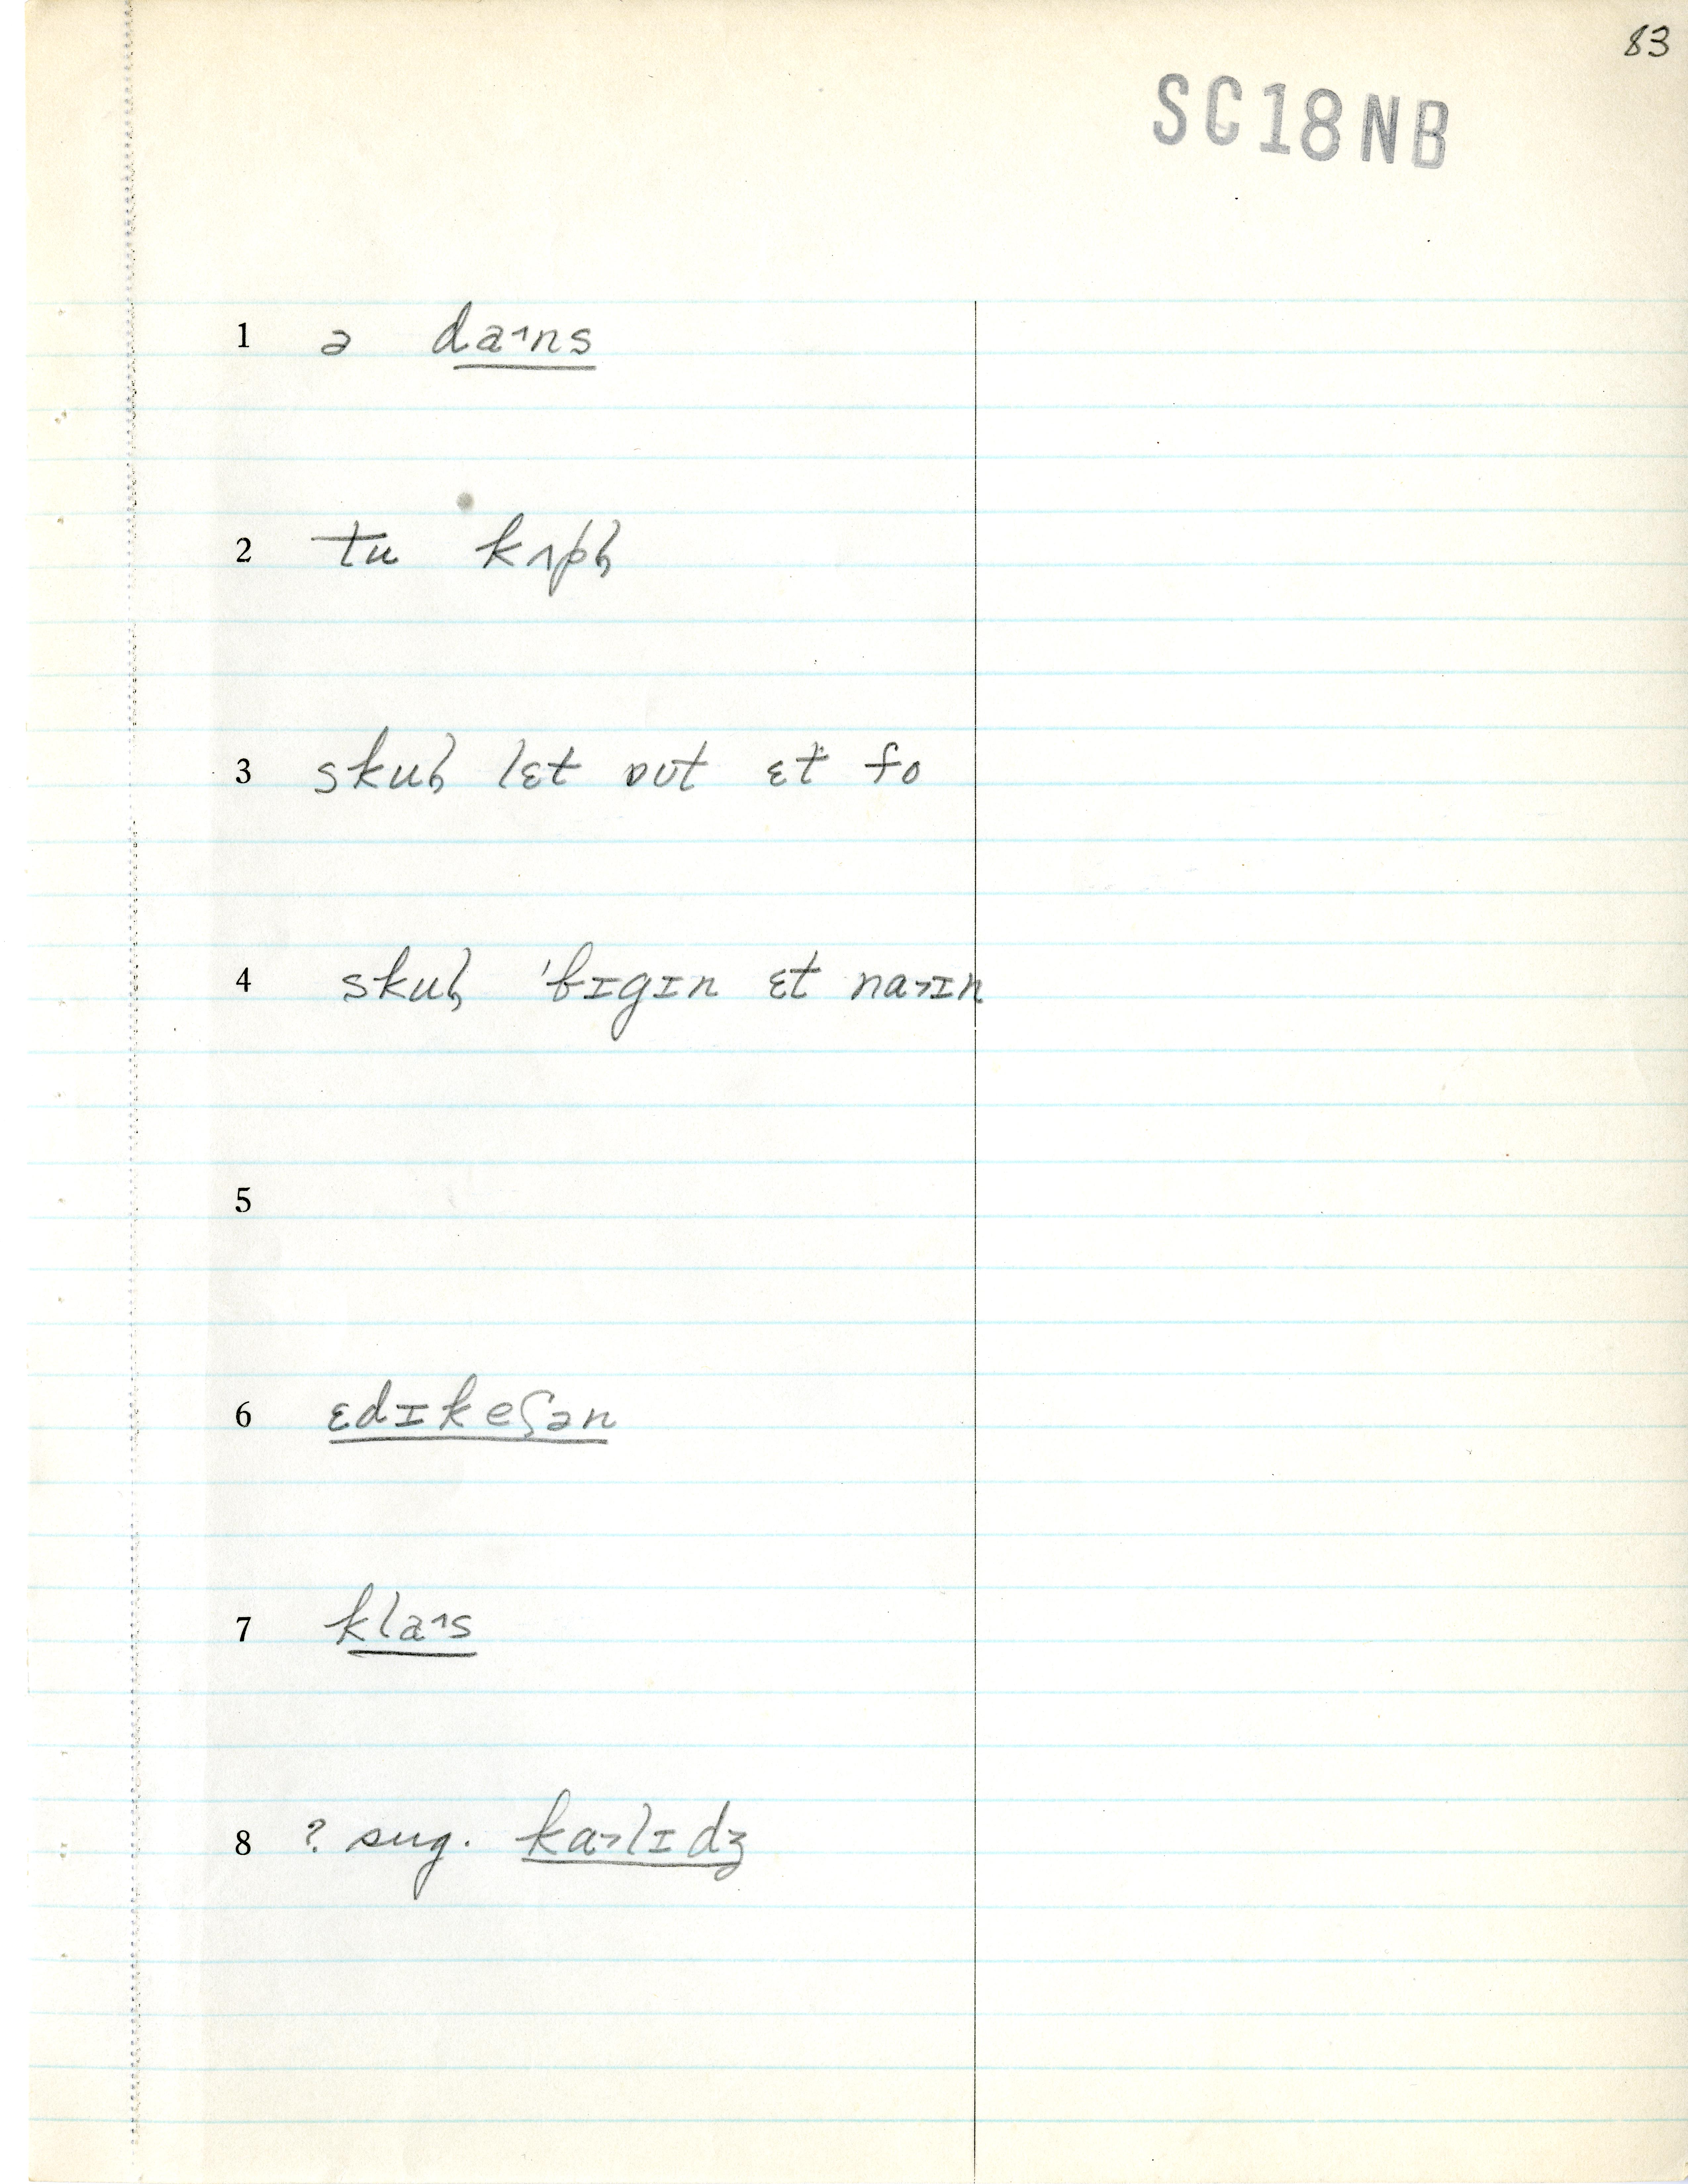 83
SC18NB
1 ə da˄ns
2 tu kʌpɫ
3 skuɫ lɛt ɒʊt ɛt fo
4 skuɫ 'bɪgɪn ɛt na˃ɪn
5
6 ɛdɪkeʃən
7 kla˄s
8 ? sug. ka˃lɪdʒ